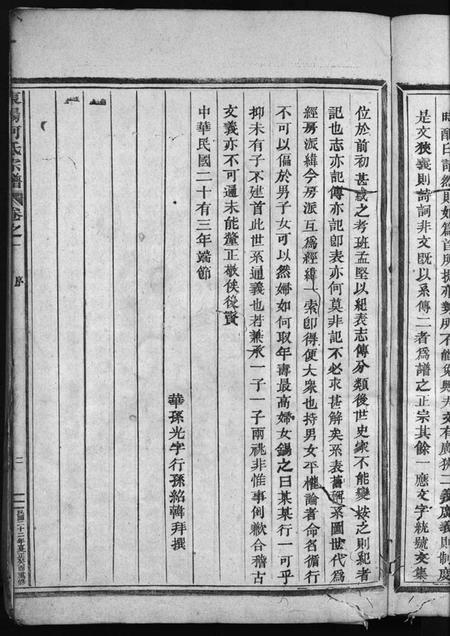 時醉白詩然則如篇首所擬亦勢所不能免與夫文有廣狹二義廣義則制度
是文狹義則詩詞非文既以系傳二者為譜之正宗其餘一應文字統號文集
位於前初甚歉之考班孟堅以紀表志傳分類後世史家不能變按之則紀者
記也志亦記傳亦記即表亦何莫非記不必求甚解矣系表舊稱系圖世代為
經房派為緯今房派互為經緯一索即得便大眾也持男女平權論者命名循行
不可以偏於男子女可以然婦如何取年壽最高婦女錫之曰某某行一可乎
抑未有子不建首此世系通義也若兼承一子一子兩祧非惟事倒歉合稽古
文義亦不可通未能釐正敬俟後賢
中華民國二十有三年端節
華孫光字行孫紹韓拜撰
東陽何氏宗譜
卷之一
序
二